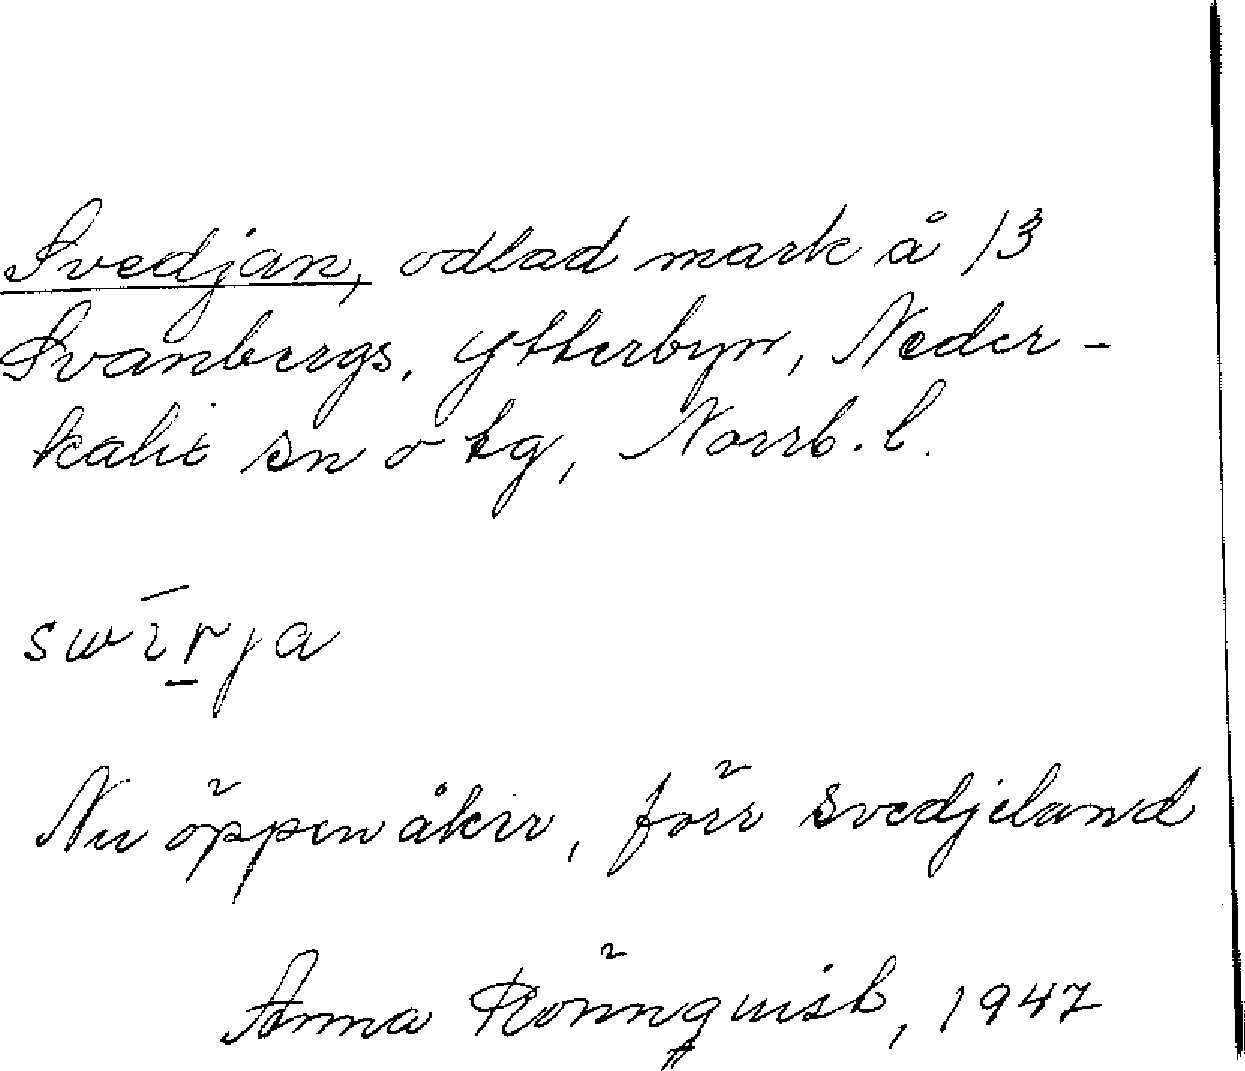 Svedjan, odlad mark å 13
Svanbergs, Ytterbyn, Neder-
kalix sn o tg, Norrb. l.
swīṟja
Nu öppen åker, förr svedjeland
Anna Rönnquist, 1947